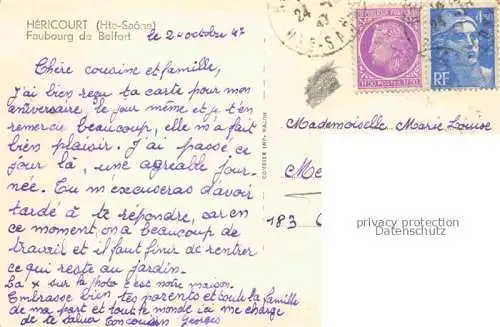 HÉRICOURT (Hte-Saône)
Faubourg de Belfort
le 24 octobre 47
Chère cousine et famille,
J'ai bien reçu ta carte pour mon
aniversaire le jour même et je t'en
remercie beaucoup, elle m'a fait
bien plaisir. J'ai passé ce
jour là, une agréable jour-
née. Tu m'excuseras d'avoir
tardé à te répondre, car en
ce moment, on a beaucoup de
travail et il faut finir de rentrer
ce qui reste au jardin.
La x sur la photo c'est notre maison.
Embrasse bien tes parents et toute la famille
de ma part et tout le monde ici me charge
de te saluer Ton cousin Georges
COMBIER IMP. MACON
24
47
RF
Mademoiselle Marie Louise
Me
183
privacy protection
Datenschutz